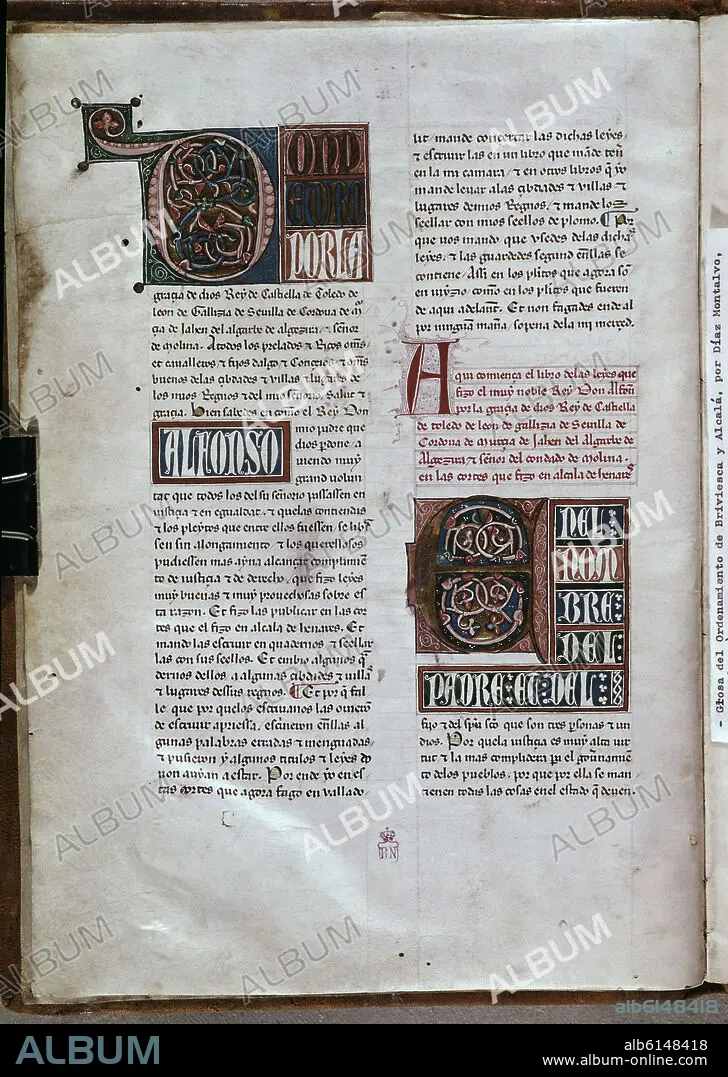 DON P
EDRO
PORLA
gracia de dios Rey de Castiella de Toledo de
leon de Gallizia de Seuilla de Cordoua de
çia de Jahen del algarbe de algezira, & señor
de Molina. A todos los prelados & Ricos oms
et caualleros & fijos dalgo & Conceios & oms
buenos de las çibdades & villas & lugares de
los mios Regnos & del mio señorio. Salut &
gracia. Bien sabedes en como el Rey Don
ALFONSO
mio padre que
dios perdone, a
uiendo muy
grand volun
tat que todos los del su señorio passassen en
iusticia & en egualdat, & quelas contiendas
& los pleytos que entre ellos fuessen, se libr
sen sin alongamiento, & los querellosos
pudiessen mas ayna alcançar complimien
to de iusticia & de derecho, que fizo leyes
muy buenas & muy prouechosas sobre es
ta razon. Et fizo las publicar en las cor
tes que el fizo en alcala de henares. Et
mando las escriuir en quadernos & seellar
las con sus seellos. Et embio algunos q̃
dernos dellos, a algunas çibdades & villas
& lugares de sus regnos. Et por q̃ fa
lle que por quelos escriuanos las ouieron
de escriuir apriessa, escriuieron en ellas al
gunas palabras erradas & menguadas,
& pusieron y algunos titulos & leyes do
non auyan a estar. Por ende yo en es
tas cortes que agora fago en vallado
lit, mande concertar las dichas leyes,
& escriuir las en un libro que mande ten
en la mi camara, & en otros libros q̃ yo
mande leuar a las çibdades & villas &
lugares de mios Regnos, & mande los
seellar con mios seellos de plomo. Por
que vos mando que vsedes delas dichas
leyes, & las guardedes segund en ellas se
contiene. Assi en los pleitos que agora son
en iuyzio como en los pleitos que fueren
de aqui adelant. Et non fagades ende al
por ninguna maña, so pena de la mi merced.
Aqui comiença el libro delas leyes que
fizo el muy noble Rey Don Alfon
por la gracia de dios Rey de Castiella
de toledo de leon de gallizia de Seuilla de
Cordoua de Murcia de Jahen del Algarbe de
Algezira & señor del condado de Molina.
en las cortes que fizo en alcala de henares
EN EL
NOM
BRE:
DEL:
PADRE: ET: DEL:
fijo & del spũ scõ que son tres personas & un
dios. Por quela iusticia es muy alta uir
tut & la mas complidera pa el gouernamien
to delos pueblos, por que por ella se man
tienen todas las cosas en el estado q̃ deuen.
BN
- Glosa del Ordenamiento de Briviesca y Alcalá, por Díaz Montalvo,
alb6148418
ALBUM
alb6148418
www.album-online.com